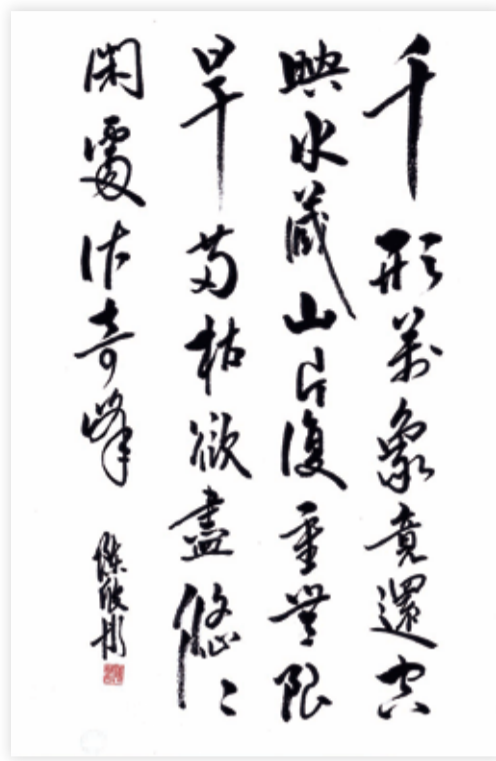 千形萬象竟還空
暎水藏山片復重無限
旱苗枯欲盡悠〻
閑處作奇峯